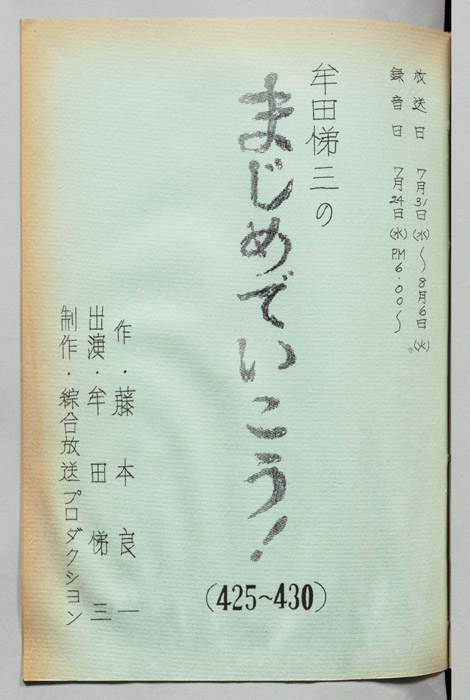 放送日　7月31日(水)〜8月6日(火)
録音日　7月24日(水)PM6.00〜
牟田悌三の
まじめでいこう！
(425~430)
作・藤本良一
出演・牟田悌三
制作・綜合放送プロダクション